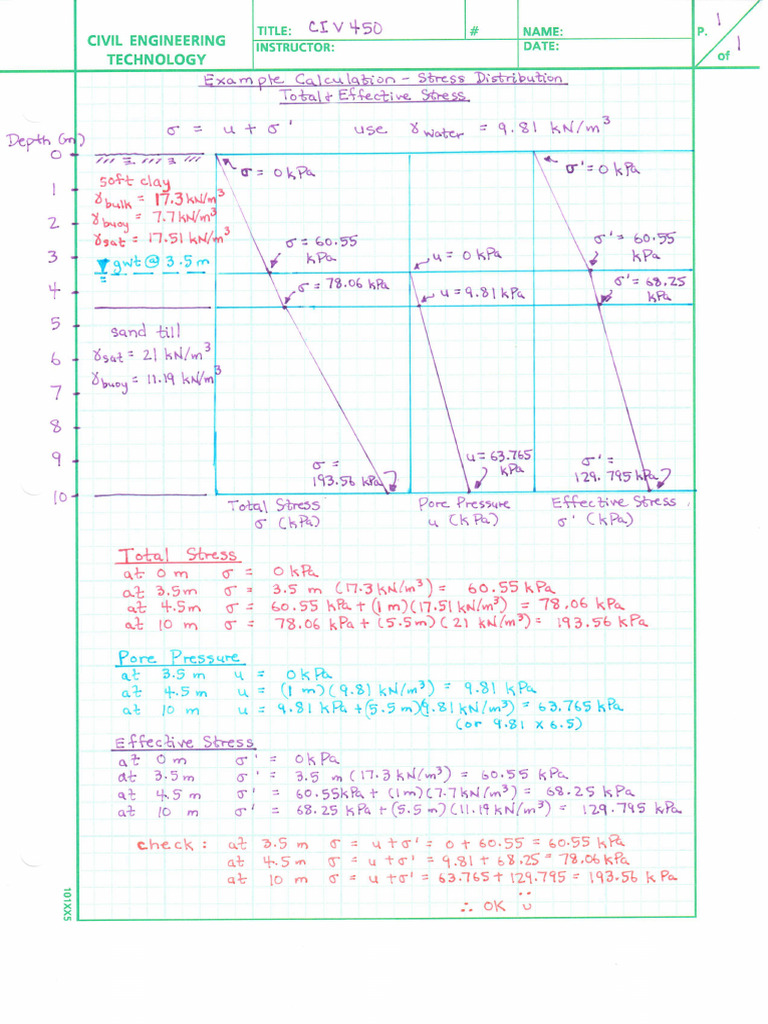 CIVIL ENGINEERING
TECHNOLOGY
TITLE: CIV 450
INSTRUCTOR:
#
NAME:
DATE:
P. 1
of 1
Example Calculation - Stress Distribution
Total & Effective Stress
σ = u + σ' use γwater = 9.81 kN/m³
Depth (m)
0
1
2
3
4
5
6
7
8
9
10
soft clay
γbulk = 17.3 kN/m³
γbuoy = 7.7 kN/m³
γsat = 17.51 kN/m³
gwt @ 3.5 m
sand till
γsat = 21 kN/m³
γbuoy = 11.19 kN/m³
σ = 0 kPa
σ = 60.55
kPa
σ = 78.06 kPa
σ =
193.56 kPa
u = 0 kPa
u = 9.81 kPa
u = 63.765
kPa
σ' = 0 kPa
σ' = 60.55
kPa
σ' = 68.25
kPa
σ' =
129.795 kPa
Total Stress
σ (kPa)
Pore Pressure
u (kPa)
Effective Stress
σ' (kPa)
Total Stress
at 0 m σ = 0 kPa
at 3.5m σ = 3.5 m (17.3 kN/m³) = 60.55 kPa
at 4.5m σ = 60.55 kPa + (1 m)(17.51 kN/m³) = 78.06 kPa
at 10 m σ = 78.06 kPa + (5.5m)(21 kN/m³) = 193.56 kPa
Pore Pressure
at 3.5 m u = 0 kPa
at 4.5 m u = (1 m)(9.81 kN/m³) = 9.81 kPa
at 10 m u = 9.81 kPa + (5.5m)(9.81 kN/m³) = 63.765 kPa
(or 9.81 x 6.5)
Effective Stress
at 0 m σ' = 0 kPa
at 3.5m σ' = 3.5 m (17.3 kN/m³) = 60.55 kPa
at 4.5 m σ' = 60.55kPa + (1m)(7.7 kN/m³) = 68.25 kPa
at 10 m σ' = 68.25 kPa + (5.5 m)(11.19 kN/m³) = 129.795 kPa
check : at 3.5 m σ = u + σ' = 0 + 60.55 = 60.55 kPa
at 4.5 m σ = u + σ' = 9.81 + 68.25 = 78.06 kPa
at 10 m σ = u + σ' = 63.765 + 129.795 = 193.56 kPa
∴ OK
101XX5